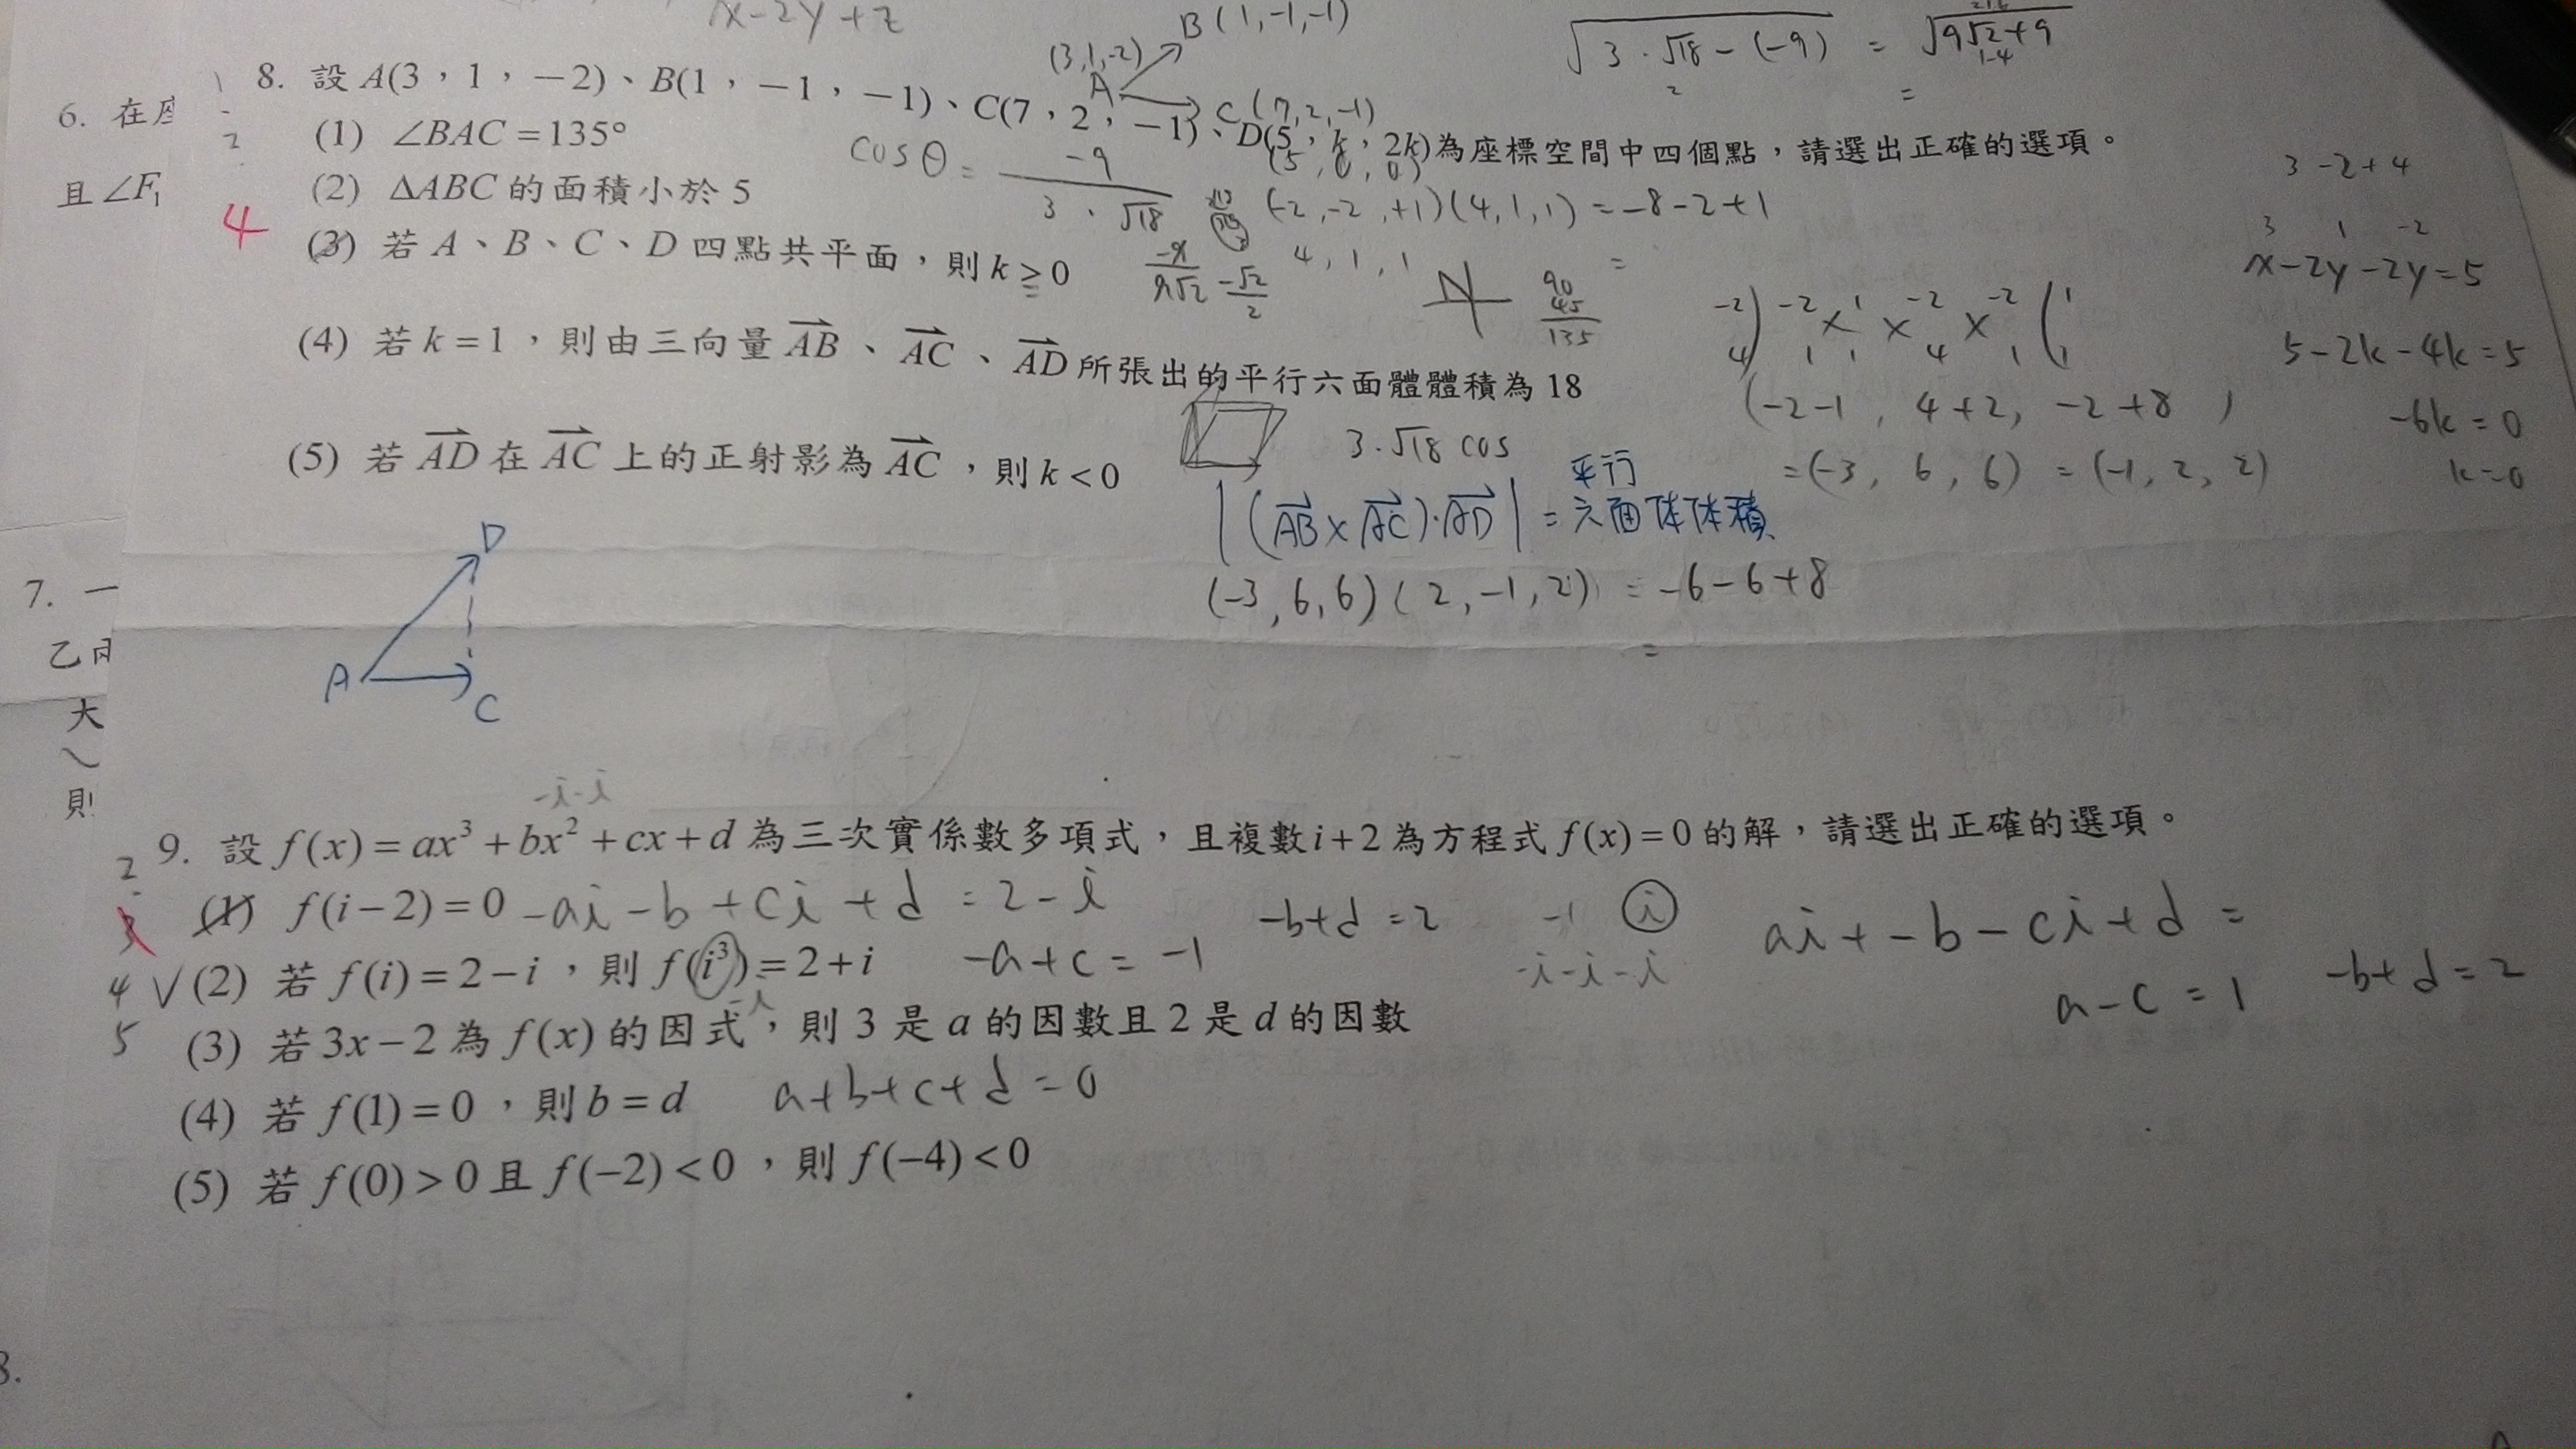 x-2y+z
B(1,-1,-1)
(3,1,-2)
A
C(7,2,-1)
√(3·√18-(-9)) = √(9√2+9)
8. 設A(3,1,-2)、B(1,-1,-1)、C(7,2,-1)、D(5,k,2k)為座標空間中四個點,請選出正確的選項。
1
2
4
(5,0,0)
6. 在座
(1) ∠BAC=135°
cosθ = -9/(3·√18)
3-2+4
且∠F₁
(2) ΔABC的面積小於5
(-2,-2,+1)(4,1,1) = -8-2+1
4,1,1
3 1 -2
x-2y-2y=5
(3) 若A、B、C、D四點共平面,則k≥0
-9/9√2 -√2/2
90
45
135
-2) -2 × 1 × -2 × -2 ( 1
4) 1 1 4 1 ( 1
5-2k-4k=5
(4) 若k=1,則由三向量AB、AC、AD所張出的平行六面體體積為18
(-2-1, 4+2, -2+8)
-6k=0
(5) 若AD在AC上的正射影為AC,則k<0
3·√18 cos
=(-3, 6, 6) = (-1, 2, 2)
k=0
|(AB×AC)·AD| = 平行六面体体積
(-3,6,6)(2,-1,2) = -6-6+8
=
D
A
C
7. 一
乙
大
則
-i-i
9. 設f(x)=ax³+bx²+cx+d為三次實係數多項式,且複數i+2為方程式f(x)=0的解,請選出正確的選項。
2
4
5
(1) f(i-2)=0
-ai-b+ci+d = 2-i
-b+d=2
-1 i
ai+-b-ci+d =
√(2) 若f(i)=2-i,則f(i³)=2+i
-i
-a+c=-1
-i-i-i
a-c=1
-b+d=2
(3) 若3x-2為f(x)的因式,則3是a的因數且2是d的因數
(4) 若f(1)=0,則b=d
a+b+c+d=0
(5) 若f(0)>0且f(-2)<0,則f(-4)<0